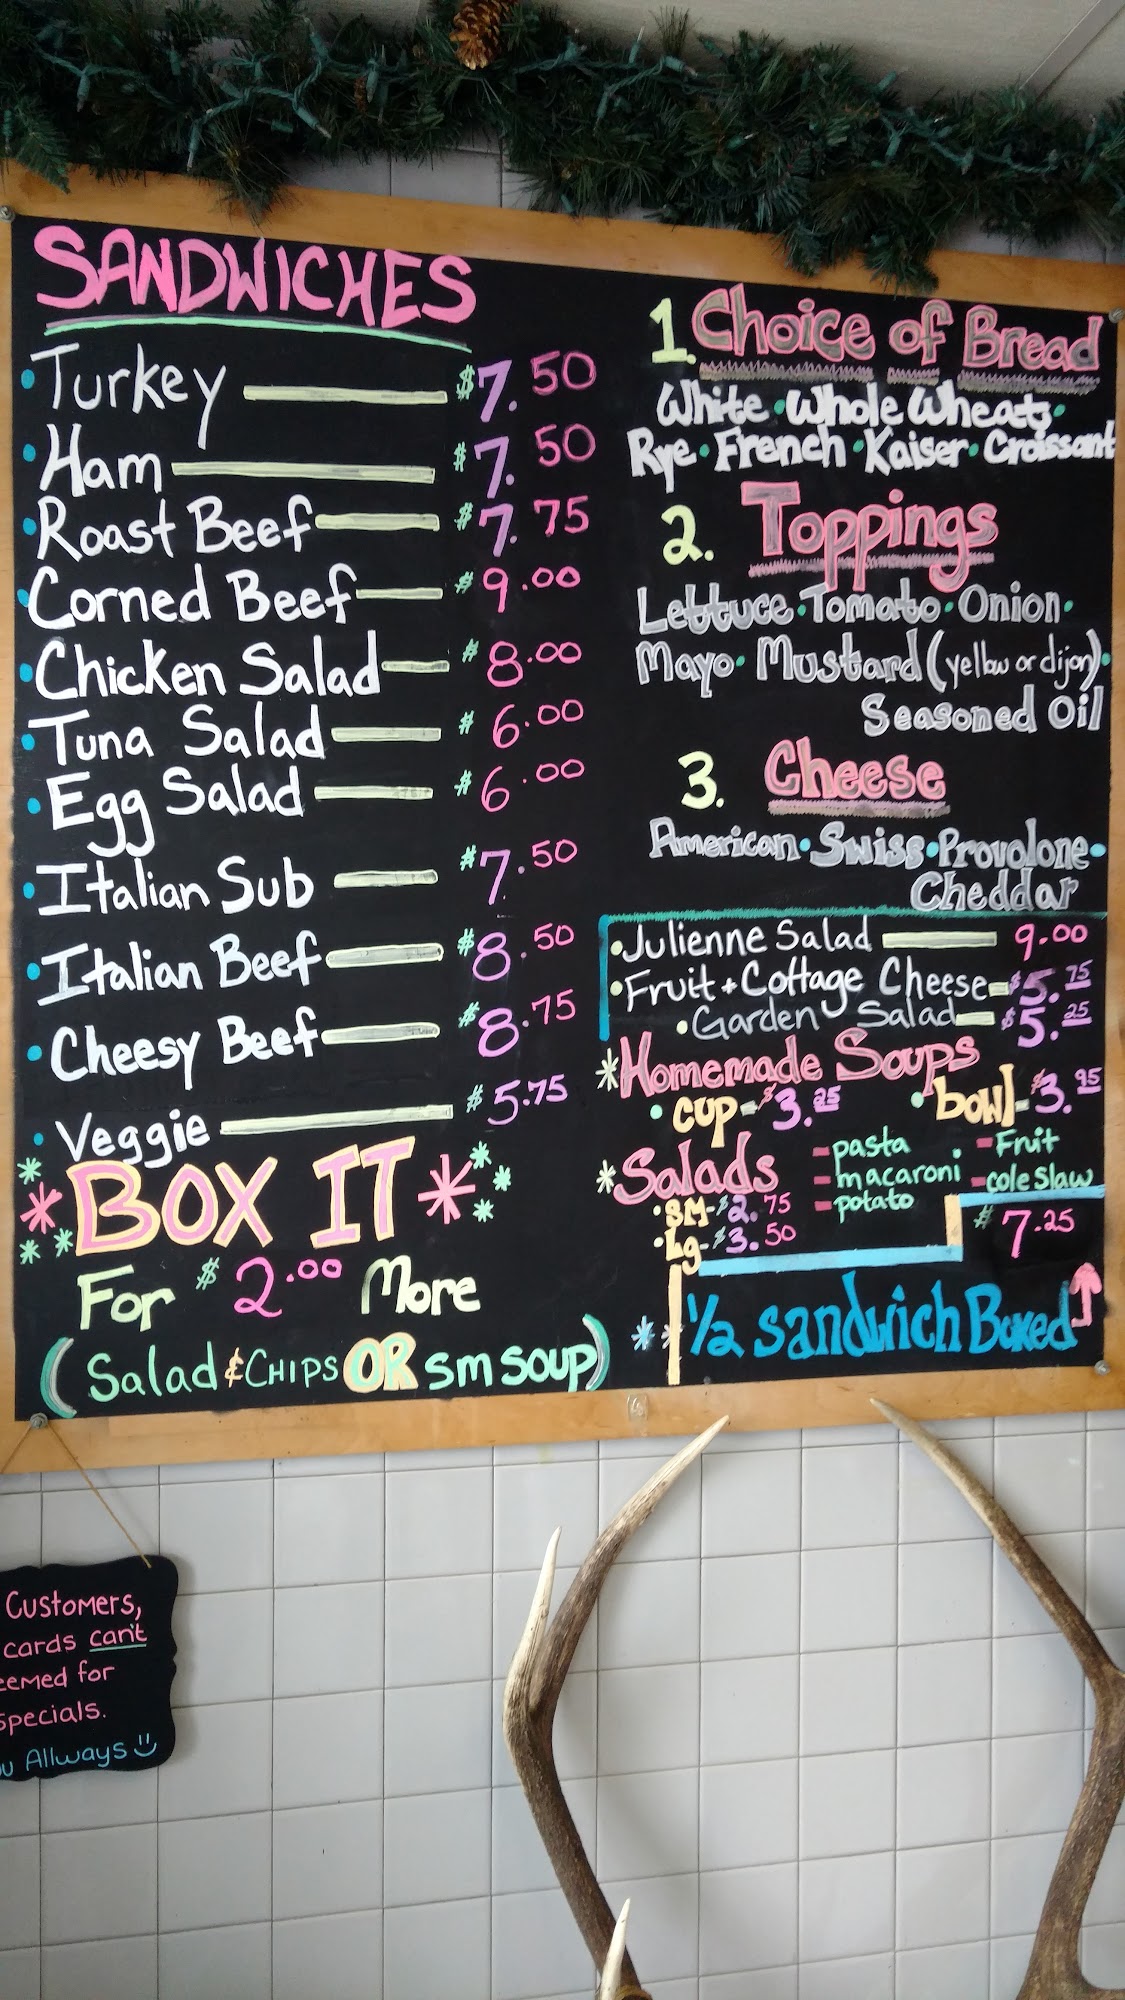 SANDWICHES
• Turkey $7.50
• Ham $7.50
• Roast Beef $7.75
• Corned Beef $9.00
• Chicken Salad $8.00
• Tuna Salad $6.00
• Egg Salad $6.00
• Italian Sub $7.50
• Italian Beef $8.50
• Cheesy Beef $8.75
• Veggie $5.75
BOX IT
For $2.00 More
(Salad & CHIPS OR sm soup)
1. Choice of Bread
White • Whole Wheat •
Rye • French • Kaiser • Croissant
2. Toppings
Lettuce • Tomato • Onion •
Mayo • Mustard (yellow or dijon) •
Seasoned Oil
3. Cheese
American • Swiss • Provolone •
Cheddar
• Julienne Salad 9.00
• Fruit + Cottage Cheese $5.75
• Garden Salad $5.25
* Homemade Soups
• cup - $3.25 • bowl - $3.95
* Salads
- pasta - Fruit
- macaroni - coleslaw
- potato
• SM - $2.75
• Lg - $3.50
$7.25
** 1/2 sandwich Boxed
Customers,
cards can't
for
Allways